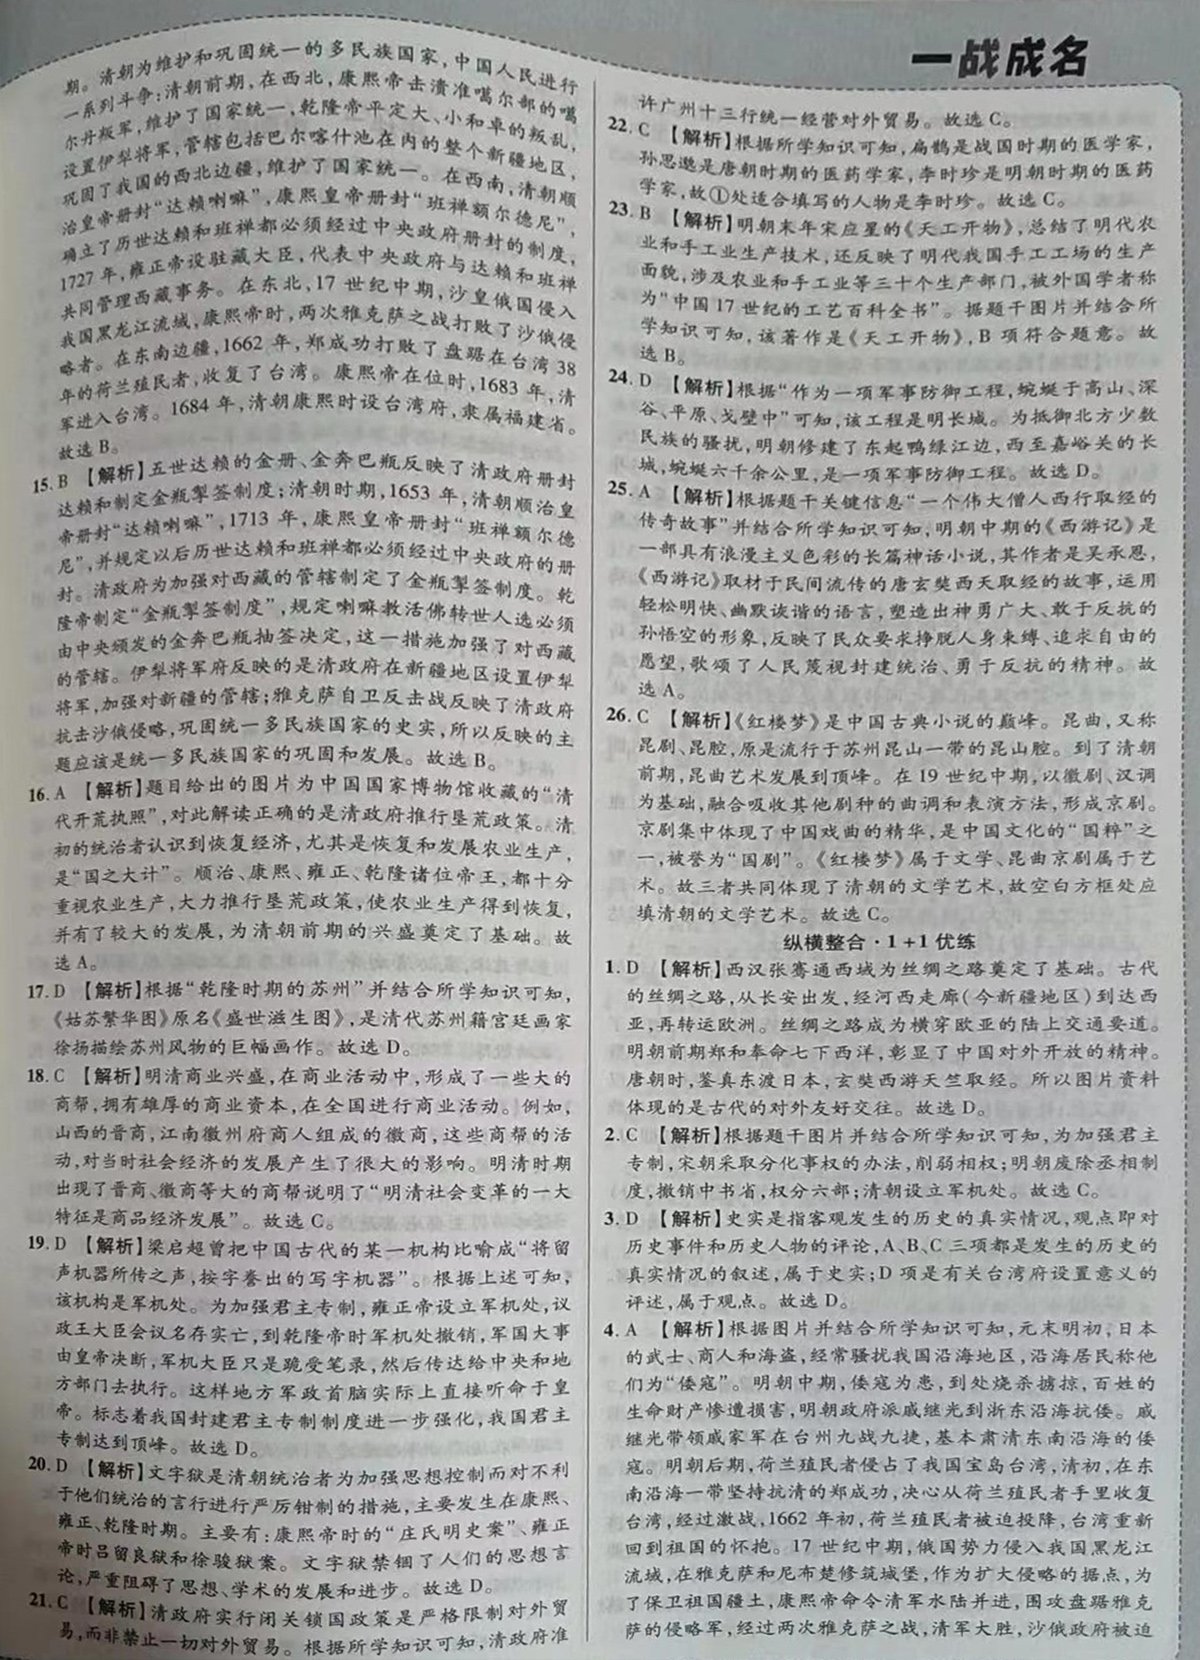 一战成名
期。清朝为维护和巩固统一的多民族国家,中国人民进行
一系列斗争:清朝前期,在西北,康熙帝击溃准噶尔部的噶
尔丹叛军,维护了国家统一,乾隆帝平定大、小和卓的叛乱,
设置伊犁将军,管辖包括巴尔喀什池在内的整个新疆地区,
巩固了我国的西北边疆,维护了国家统一。在西南,清朝顺
治皇帝册封“达赖喇嘛”,康熙皇帝册封“班禅额尔德尼”,
确立了历世达赖和班禅都必须经过中央政府册封的制度,
1727年,雍正帝设驻藏大臣,代表中央政府与达赖和班禅
共同管理西藏事务。在东北,17世纪中期,沙皇俄国侵入
我国黑龙江流域,康熙帝时,两次雅克萨之战打败了沙俄侵
略者。在东南边疆,1662年,郑成功打败了盘踞在台湾38
年的荷兰殖民者,收复了台湾。康熙帝在位时,1683年,清
军进入台湾。1684年,清朝康熙时设台湾府,隶属福建省。
故选B。
15. B 【解析】五世达赖的金册、金奔巴瓶反映了清政府册封
达赖和制定金瓶掣签制度;清朝时期,1653年,清朝顺治皇
帝册封“达赖喇嘛”,1713年,康熙皇帝册封“班禅额尔德
尼”,并规定以后历世达赖和班禅都必须经过中央政府的册
封。清政府为加强对西藏的管辖制定了金瓶掣签制度。乾
隆帝制定“金瓶掣签制度”,规定喇嘛教活佛转世人选必须
由中央颁发的金奔巴瓶抽签决定,这一措施加强了对西藏
的管辖。伊犁将军府反映的是清政府在新疆地区设置伊犁
将军,加强对新疆的管辖;雅克萨自卫反击战反映了清政府
抗击沙俄侵略,巩固统一多民族国家的史实,所以反映的主
题应该是统一多民族国家的巩固和发展。故选B。
16. A 【解析】题目给出的图片为中国国家博物馆收藏的“清
代开荒执照”,对此解读正确的是清政府推行垦荒政策。清
初的统治者认识到恢复经济,尤其是恢复和发展农业生产,
是“国之大计”。顺治、康熙、雍正、乾隆诸位帝王,都十分
重视农业生产,大力推行垦荒政策,使农业生产得到恢复,
并有了较大的发展,为清朝前期的兴盛奠定了基础。故
选A。
17. D 【解析】根据“乾隆时期的苏州”并结合所学知识可知,
《姑苏繁华图》原名《盛世滋生图》,是清代苏州籍宫廷画家
徐扬描绘苏州风物的巨幅画作。故选D。
18. C 【解析】明清商业兴盛,在商业活动中,形成了一些大的
商帮,拥有雄厚的商业资本,在全国进行商业活动。例如,
山西的晋商,江南徽州府商人组成的徽商,这些商帮的活
动,对当时社会经济的发展产生了很大的影响。明清时期
出现了晋商、徽商等大的商帮说明了“明清社会变革的一大
特征是商品经济发展”。故选C。
19. D 【解析】梁启超曾把中国古代的某一机构比喻成“将留
声机器所传之声,按字誊出的写字机器”。根据上述可知,
该机构是军机处。为加强君主专制,雍正帝设立军机处,议
政王大臣会议名存实亡,到乾隆帝时军机处撤销,军国大事
由皇帝决断,军机大臣只是跪受笔录,然后传达给中央和地
方部门去执行。这样地方军政首脑实际上直接听命于皇
帝。标志着我国封建君主专制制度进一步强化,我国君主
专制达到顶峰。故选D。
20. D 【解析】文字狱是清朝统治者为加强思想控制而对不利
于他们统治的言行进行严厉钳制的措施,主要发生在康熙、
雍正、乾隆时期。主要有:康熙帝时的“庄氏明史案”、雍正
帝时吕留良狱和徐骏狱案。文字狱禁锢了人们的思想言
论,严重阻碍了思想、学术的发展和进步。故选D。
21. C 【解析】清政府实行闭关锁国政策是严格限制对外贸
易,而非禁止一切对外贸易。根据所学知识可知,清政府准
许广州十三行统一经营对外贸易。故选C。
22. C 【解析】根据所学知识可知,扁鹊是战国时期的医学家,
孙思邈是唐朝时期的医药学家,李时珍是明朝时期的医药
学家,故①处适合填写的人物是李时珍。故选C。
23. B 【解析】明朝末年宋应星的《天工开物》,总结了明代农
业和手工业生产技术,还反映了明代我国手工工场的生产
面貌,涉及农业和手工业等三十个生产部门,被外国学者称
为“中国17世纪的工艺百科全书”。据题干图片并结合所
学知识可知,该著作是《天工开物》,B项符合题意。故
选B。
24. D 【解析】根据“作为一项军事防御工程,蜿蜒于高山、深
谷、平原、戈壁中”可知,该工程是明长城。为抵御北方少数
民族的骚扰,明朝修建了东起鸭绿江边,西至嘉峪关的长
城,蜿蜒六千余公里,是一项军事防御工程。故选D。
25. A 【解析】根据题干关键信息“一个伟大僧人西行取经的
传奇故事”并结合所学知识可知,明朝中期的《西游记》是
一部具有浪漫主义色彩的长篇神话小说,其作者是吴承恩,
《西游记》取材于民间流传的唐玄奘西天取经的故事,运用
轻松明快、幽默诙谐的语言,塑造出神勇广大、敢于反抗的
孙悟空的形象,反映了民众要求挣脱人身束缚、追求自由的
愿望,歌颂了人民蔑视封建统治、勇于反抗的精神。故
选A。
26. C 【解析】《红楼梦》是中国古典小说的巅峰。昆曲,又称
昆剧、昆腔,原是流行于苏州昆山一带的昆山腔。到了清朝
前期,昆曲艺术发展到顶峰。在19世纪中期,以徽剧、汉调
为基础,融合吸收其他剧种的曲调和表演方法,形成京剧。
京剧集中体现了中国戏曲的精华,是中国文化的“国粹”之
一,被誉为“国剧”。《红楼梦》属于文学、昆曲京剧属于艺
术。故三者共同体现了清朝的文学艺术,故空白方框处应
填清朝的文学艺术。故选C。
纵横整合·1+1优练
1. D 【解析】西汉张骞通西域为丝绸之路奠定了基础。古代
的丝绸之路,从长安出发,经河西走廊(今新疆地区)到达西
亚,再转运欧洲。丝绸之路成为横穿欧亚的陆上交通要道。
明朝前期郑和奉命七下西洋,彰显了中国对外开放的精神。
唐朝时,鉴真东渡日本,玄奘西游天竺取经。所以图片资料
体现的是古代的对外友好交往。故选D。
2. C 【解析】根据题干图片并结合所学知识可知,为加强君主
专制,宋朝采取分化事权的办法,削弱相权;明朝废除丞相制
度,撤销中书省,权分六部;清朝设立军机处。故选C。
3. D 【解析】史实是指客观发生的历史的真实情况,观点即对
历史事件和历史人物的评论,A、B、C三项都是发生的历史的
真实情况的叙述,属于史实;D项是有关台湾府设置意义的
评述,属于观点。故选D。
4. A 【解析】根据图片并结合所学知识可知,元末明初,日本
的武士、商人和海盗,经常骚扰我国沿海地区,沿海居民称他
们为“倭寇”。明朝中期,倭寇为患,到处烧杀掳掠,百姓的
生命财产惨遭损害,明朝政府派戚继光到浙东沿海抗倭。戚
继光带领戚家军在台州九战九捷,基本肃清东南沿海的倭
寇。明朝后期,荷兰殖民者侵占了我国宝岛台湾,清初,在东
南沿海一带坚持抗清的郑成功,决心从荷兰殖民者手里收复
台湾,经过激战,1662年初,荷兰殖民者被迫投降,台湾重新
回到祖国的怀抱。17世纪中期,俄国势力侵入我国黑龙江
流域,在雅克萨和尼布楚修筑城堡,作为扩大侵略的据点,为
了保卫祖国疆土,康熙帝命令清军水陆并进,围攻盘踞雅克
萨的侵略军,经过两次雅克萨之战,清军大胜,沙俄政府被迫